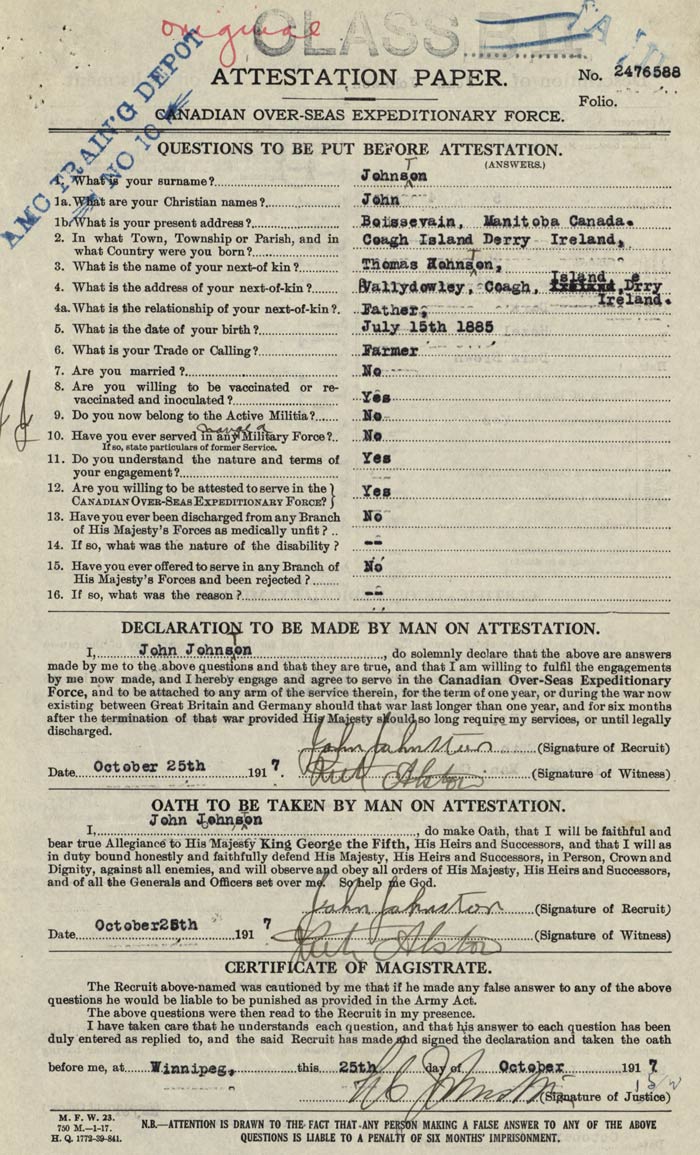 original
CLASS
AMC TRAIN'G DEPOT
NO 10
ATTESTATION PAPER.
No. 2476588
Folio.
CANADIAN OVER-SEAS EXPEDITIONARY FORCE.
QUESTIONS TO BE PUT BEFORE ATTESTATION.
(ANSWERS.)
T
1. What is your surname? Johnson
1a. What are your Christian names? John
1b. What is your present address? Boissevain, Manitoba Canada.
2. In what Town, Township or Parish, and in
what Country were you born? Coagh Island Derry Ireland,
3. What is the name of your next-of kin? Thomas Hohnson,
Island e
4. What is the address of your next-of-kin? Vallydowley, Coagh, Ireland, Drry
Ireland.
4a. What is the relationship of your next-of-kin? Father,
5. What is the date of your birth? July 15th 1885
6. What is your Trade or Calling? Farmer
7. Are you married? No
8. Are you willing to be vaccinated or re-
vaccinated and inoculated? Yes
9. Do you now belong to the Active Militia? No
10. Have you ever served in any Military Force?.. No
If so, state particulars of former Service.
11. Do you understand the nature and terms of
your engagement? Yes
12. Are you willing to be attested to serve in the }
CANADIAN OVER-SEAS EXPEDITIONARY FORCE? } Yes
13. Have you ever been discharged from any Branch
of His Majesty's Forces as medically unfit? .. No
14. If so, what was the nature of the disability? --
15. Have you ever offered to serve in any Branch of
His Majesty's Forces and been rejected? No
16. If so, what was the reason? --
DECLARATION TO BE MADE BY MAN ON ATTESTATION.
T
I, John Johnson, do solemnly declare that the above are answers
made by me to the above questions and that they are true, and that I am willing to fulfil the engagements
by me now made, and I hereby engage and agree to serve in the Canadian Over-Seas Expeditionary
Force, and to be attached to any arm of the service therein, for the term of one year, or during the war now
existing between Great Britain and Germany should that war last longer than one year, and for six months
after the termination of that war provided His Majesty should so long require my services, or until legally
discharged.
John Johnston (Signature of Recruit)
Date October 25th 1917. Alston (Signature of Witness)
OATH TO BE TAKEN BY MAN ON ATTESTATION.
T
I, John Johnson, do make Oath, that I will be faithful and
bear true Allegiance to His Majesty King George the Fifth, His Heirs and Successors, and that I will as
in duty bound honestly and faithfully defend His Majesty, His Heirs and Successors, in Person, Crown and
Dignity, against all enemies, and will observe and obey all orders of His Majesty, His Heirs and Successors,
and of all the Generals and Officers set over me. So help me God.
John Johnston (Signature of Recruit)
Date October25th 1917 Alston (Signature of Witness)
CERTIFICATE OF MAGISTRATE.
The Recruit above-named was cautioned by me that if he made any false answer to any of the above
questions he would be liable to be punished as provided in the Army Act.
The above questions were then read to the Recruit in my presence.
I have taken care that he understands each question, and that his answer to each question has been
duly entered as replied to, and the said Recruit has made and signed the declaration and taken the oath
before me, at Winnipeg, this 25th day of October 1917
(Signature of Justice)
M. F. W. 23.
750 M.—1-17.
H. Q. 1772-39-841.
N.B.—ATTENTION IS DRAWN TO THE FACT THAT ANY PERSON MAKING A FALSE ANSWER TO ANY OF THE ABOVE
QUESTIONS IS LIABLE TO A PENALTY OF SIX MONTHS' IMPRISONMENT.